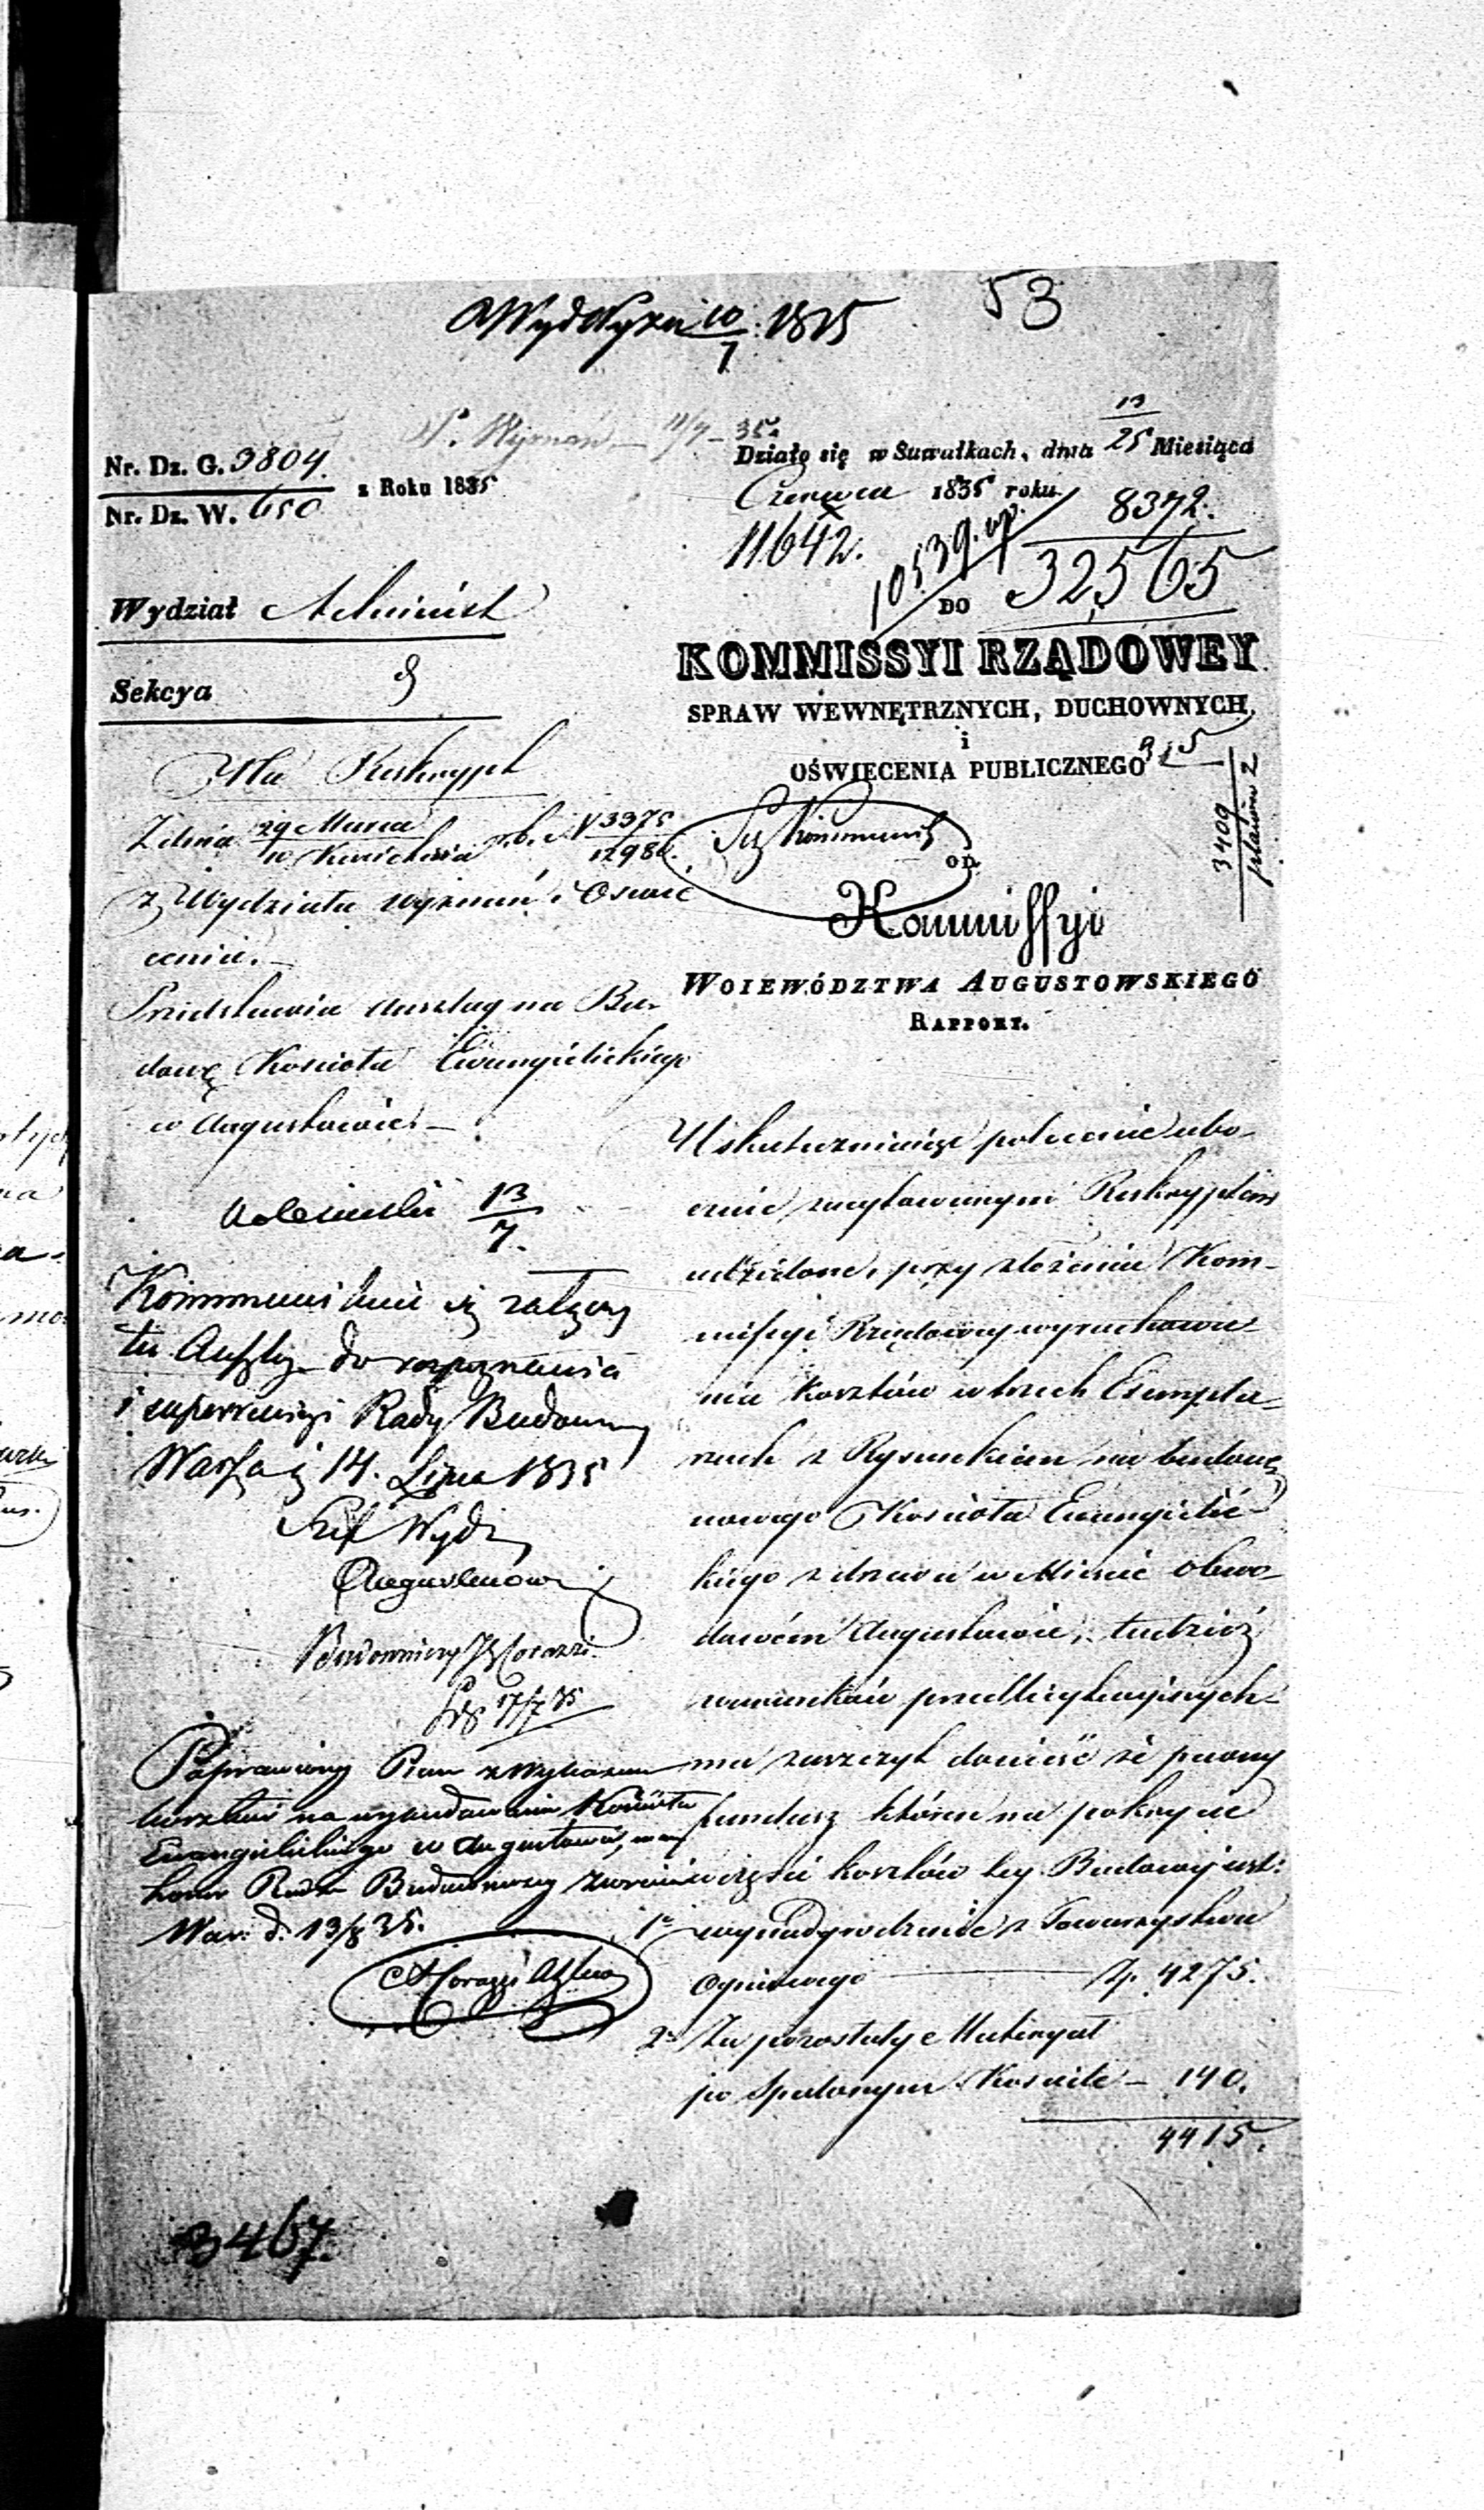 53
Wyd Wyzn 10/7 1835
P. Wyznań — 11/7 — 35.
Nr. Dz. G. 3804.
Nr. Dz. W. 650
z Roku 1835
Działo się w Suwałkach, dnia 13/25 Miesiąca
Czerwca 1835 roku
11642.
8372.
32,565
Wydział Administ
Sekcya
DO
KOMMISSYI RZĄDOWEY
SPRAW WEWNĘTRZNYCH, DUCHOWNYCH,
i
OŚWIECENIA PUBLICZNEGO
3409
OD
Kommissyi
WOIEWÓDZTWA AUGUSTOWSKIEGO
RAPPORT.
Na Reskrypt
Z dnia 29 Marca / 10 Kwietnia r. b. N 3375 / 12980.
z Wydziału wyznań i Oswie
cenia.—
Przedstawia Anszlag na Bu-
dowę Kościoła Ewangelickiego
w Augustowie.—
13/7.
Kommunikuie się załączony
tu Anszlag do rozpoznania
i superrewizyi Rady Budown
Warsza 14. Lipca 1835
Szef Wydz
Budowniczy Corazzi
17/7 35
Poprawiony Plan z Wykazem
kosztów na wybudowanie Kościoła
Ewangielickiego w Augustowie, ma
honor Radca Budowniczy zwrócić
War: d. 13/8 35.
Corazzi
Uskuteczniaiąc polecenie obo-
cznie zacytowanym Reskryptem
udzielone, przy złożeniu Kom-
missyi Rządowey wyrachowa-
nia kosztów w trzech Exempla-
rzach z Rysunkiem na budowę
nowego Kościoła Ewangielic-
kiego z drzewa w Mieście obwo-
dowém Augustowie, tudzież
warunków przedlicytacyinych-
ma zaszczyt donieść że pewny
fundusz którym na pokrycie
części kosztów tey Budowy iest:
1e wynadgrodzenie z Towarzystwa
Ogniowego — Zp. 4275.
2e Za pozostały Materyał
po Spalonym Kościele — 140.
4415.
3467.